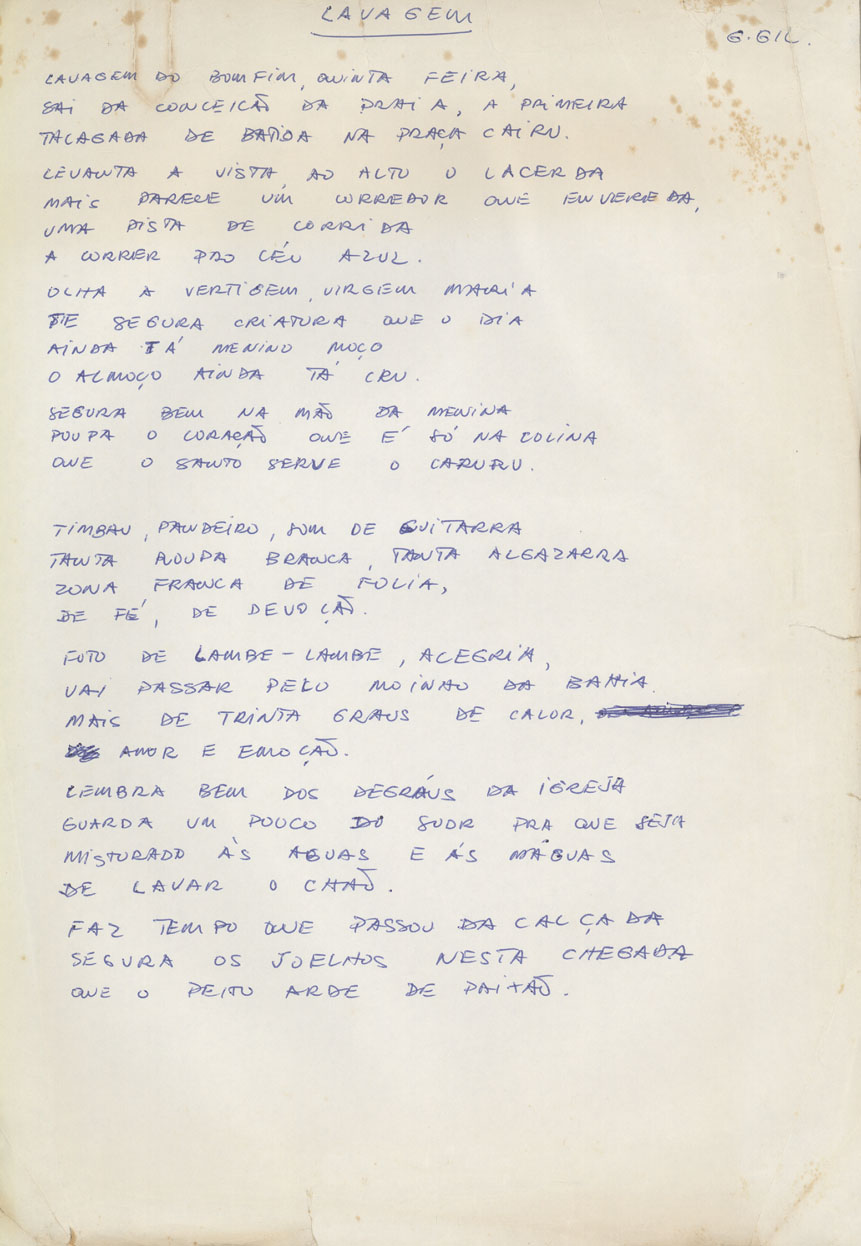 LAVAGEM
G. GIL.
LAVAGEM DO BOMFIM, QUINTA FEIRA,
SAI DA CONCEIÇÃO DA PRAIA, A PRIMEIRA
TALAGADA DE BATIDA NA PRAÇA CAIRU.
LEVANTA A VISTA, AO ALTO O LACERDA
MAIS PARECE UM CORREDOR QUE ENVEREDA,
UMA PISTA DE CORRIDA
A CORRER PRO CÉU AZUL.
OLHA A VERTIGEM, VIRGEM MARIA
TE SEGURA CRIATURA QUE O DIA
AINDA TÁ MENINO MOÇO
O ALMOÇO AINDA TÁ CRU.
SEGURA BEM NA MÃO DA MENINA
POUPA O CORAÇÃO QUE É SÓ NA COLINA
QUE O SANTO SERVE O CARURU.
TIMBAU, PANDEIRO, SOM DE GUITARRA
TANTA ROUPA BRANCA, TANTA ALGAZARRA
ZONA FRANCA DE FOLIA,
DE FÉ, DE DEVOÇÃO.
FOTO DE LAMBE-LAMBE, ALEGRIA,
VAI PASSAR PELO MOINHO DA BAHIA
MAIS DE TRINTA GRAUS DE CALOR,
AMOR E EMOÇÃO.
LEMBRA BEM DOS DEGRÁUS DA IGREJA
GUARDA UM POUCO DO SUOR PRA QUE SEJA
MISTURADO ÀS AGUAS E ÁS MÁGUAS
DE LAVAR O CHÃO.
FAZ TEMPO QUE PASSOU DA CALÇADA
SEGURA OS JOELHOS NESTA CHEGADA
QUE O PEITO ARDE DE PAIXÃO.